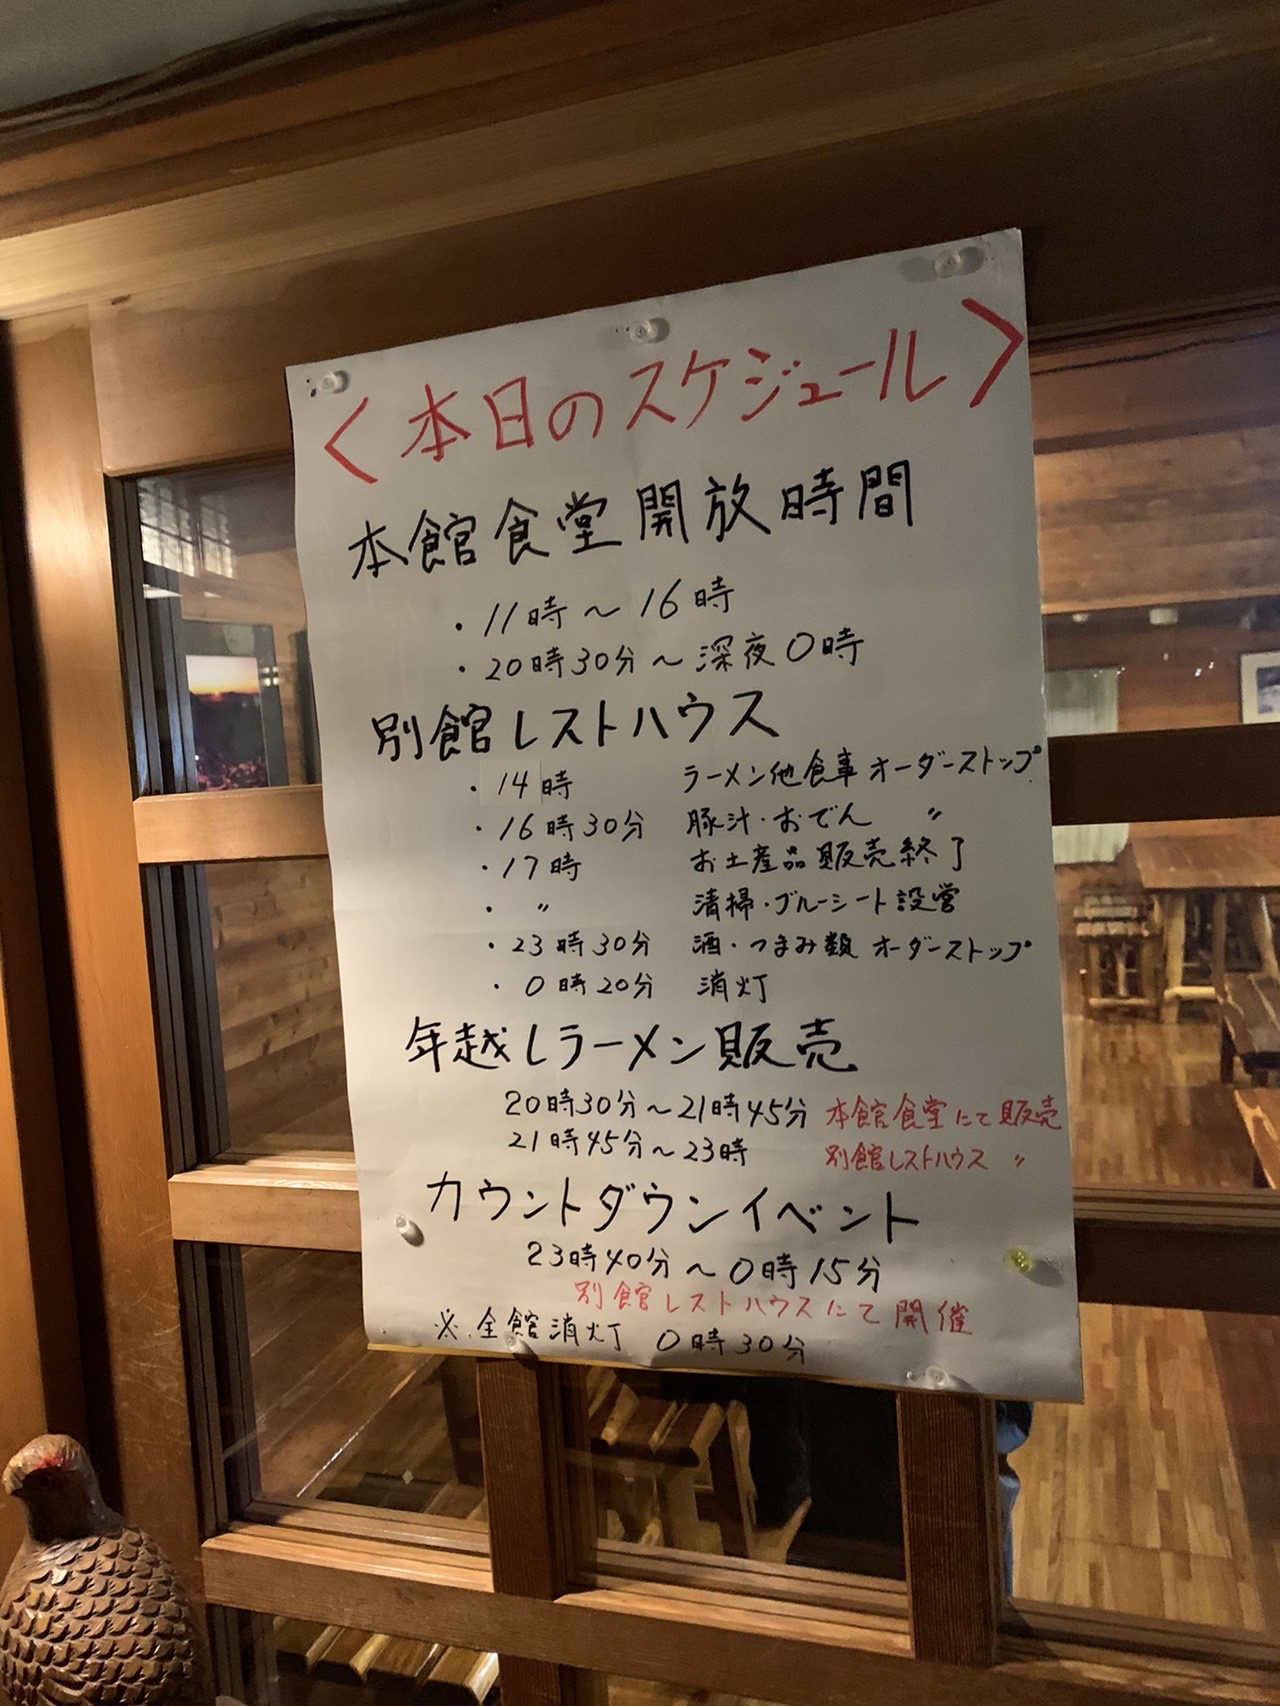 ＜本日のスケジュール＞
本館食堂開放時間
・11時～16時
・20時30分～深夜0時
別館レストハウス
・14時 ラーメン他食事オーダーストップ
・16時30分 豚汁・おでん 〃
・17時 お土産品販売終了
・〃 清掃・ブルーシート設営
・23時30分 酒・つまみ類オーダーストップ
・0時20分 消灯
年越しラーメン販売
20時30分～21時45分 本館食堂にて販売
21時45分～23時 別館レストハウス 〃
カウントダウンイベント
23時40分～0時15分
別館レストハウスにて開催
※全館消灯 0時30分